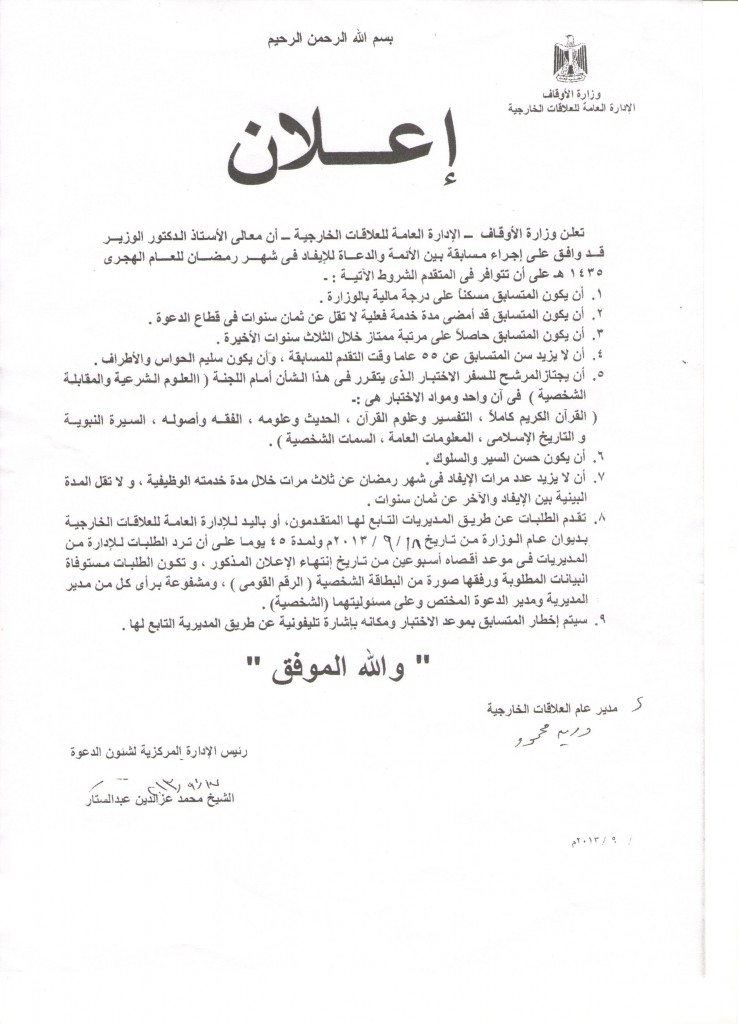 بسم الله الرحمن الرحيم
وزارة الأوقاف
الإدارة العامة للعلاقات الخارجية
إعـــلان
تعلن وزارة الأوقاف – الإدارة العامة للعلاقات الخارجية – أن معالى الأستاذ الدكتور الوزير
قد وافق على إجراء مسابقة بين الأئمة والدعاة للإيفاد فى شهر رمضان للعام الهجرى
١٤٣٥ هـ على أن تتوافر فى المتقدم الشروط الآتية : -
١. أن يكون المتسابق مسكناً على درجة مالية بالوزارة .
٢. أن يكون المتسابق قد أمضى مدة خدمة فعلية لا تقل عن ثمان سنوات فى قطاع الدعوة .
٣. أن يكون المتسابق حاصلاً على مرتبة ممتاز خلال الثلاث سنوات الأخيرة .
٤. أن لا يزيد سن المتسابق عن ٥٥ عاما وقت التقدم للمسابقة ، وأن يكون سليم الحواس والأطراف .
٥. أن يجتازالمرشح للسفر الاختبار الذى يتقرر فى هذا الشأن أمام اللجنة ( االعلوم الشرعية والمقابلة
الشخصية ) فى آن واحد ومواد الاختبار هى :-
( القرآن الكريم كاملاً ، التفسير وعلوم القرآن ، الحديث وعلومه ، الفقه وأصوله ، السيرة النبوية
و التاريخ الإسلامى ، المعلومات العامة ، السمات الشخصية ) .
٦. أن يكون حسن السير والسلوك .
٧. أن لا يزيد عدد مرات الإيفاد فى شهر رمضان عن ثلاث مرات خلال مدة خدمته الوظيفية ، و لا تقل المدة
البينية بين الإيفاد والآخر عن ثمان سنوات .
٨. تقدم الطلبات عن طريق المديريات التابع لها المتقدمون، أو باليد للإدارة العامة للعلاقات الخارجية
بديوان عام الوزارة من تاريخ ١٨ / ٩ / ٢٠١٣م ولمدة ٤٥ يوما على أن ترد الطلبات للإدارة من
المديريات فى موعد أقصاه أسبوعين من تاريخ إنتهاء الإعلان المذكور ، و تكون الطلبات مستوفاة
البيانات المطلوبة ورفقها صورة من البطاقة الشخصية ( الرقم القومى ) ، ومشفوعة برأى كل من مدير
المديرية ومدير الدعوة المختص وعلى مسئوليتهما (الشخصية) .
٩. سيتم إخطار المتسابق بموعد الاختبار ومكانه بإشارة تليفونية عن طريق المديرية التابع لها .
" والله الموفق "
مدير عام العلاقات الخارجية
رئيس الإدارة المركزية لشئون الدعوة
الشيخ محمد عزالدين عبدالستار
/ ٩ / ٢٠١٣م